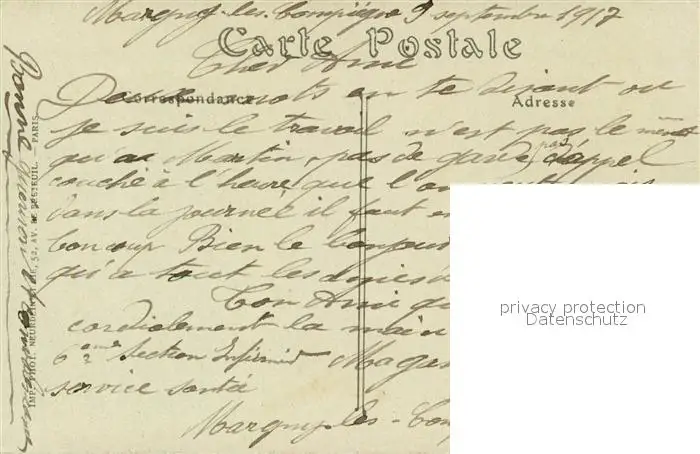 Margny les Compiègne 9 septembre 1917
Carte Postale
Cher Ami
Correspondance
Adresse
mots en te disant ou
je suis le travail n'est pas le même
qu'a Martin, pas de garde, pas d'appel
couché à l'heure que l'on
dans la journée il faut en
boncoup Bien le bonjour
qu'a tout les amis
Ton Ami qu
cordialement la main
6 eme Section Infirmie Magas
service santé
Margny les - Com
Bonne
IMP. PHOT. NEURDEIN ET CIE, 52, AV. DE BRETEUIL. - PARIS
privacy protection
Datenschutz